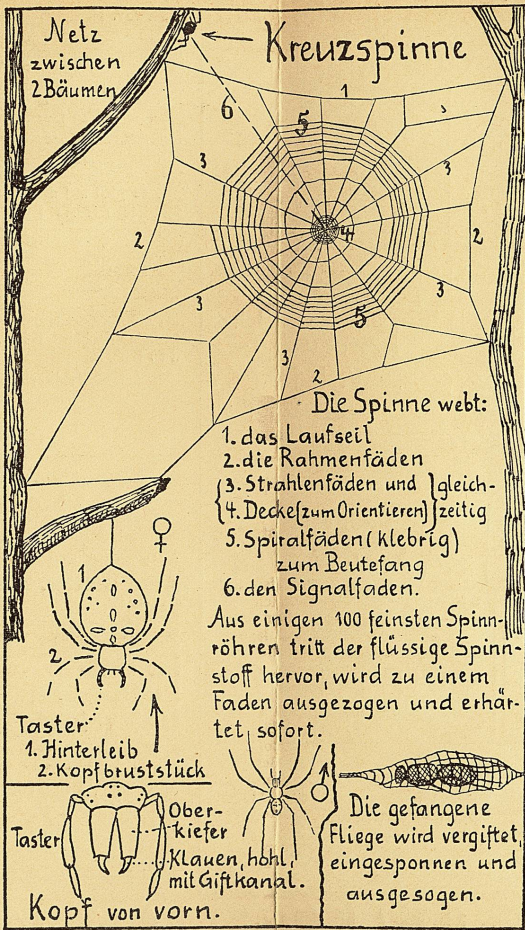 Netz
zwischen
2 Bäumen
Kreuzspinne
6
5
1
3
3
3
2
4
2
3
3
5
3
2
Die Spinne webt:
1. das Laufseil
2. die Rahmenfäden
3. Strahlenfäden und } gleich-
4. Decke (zum Orientieren) } zeitig
5. Spiralfäden (klebrig)
zum Beutefang
6. den Signalfaden.
Aus einigen 100 feinsten Spinn-
röhren tritt der flüssige Spinn-
stoff hervor, wird zu einem
Faden ausgezogen und erhär-
tet sofort.
♀
1
2
Taster
1. Hinterleib
2. Kopfbruststück
Taster
Ober-
kiefer
Klauen, hohl,
mit Giftkanal.
Kopf von vorn.
♂
Die gefangene
Fliege wird vergiftet,
eingesponnen und
ausgesogen.